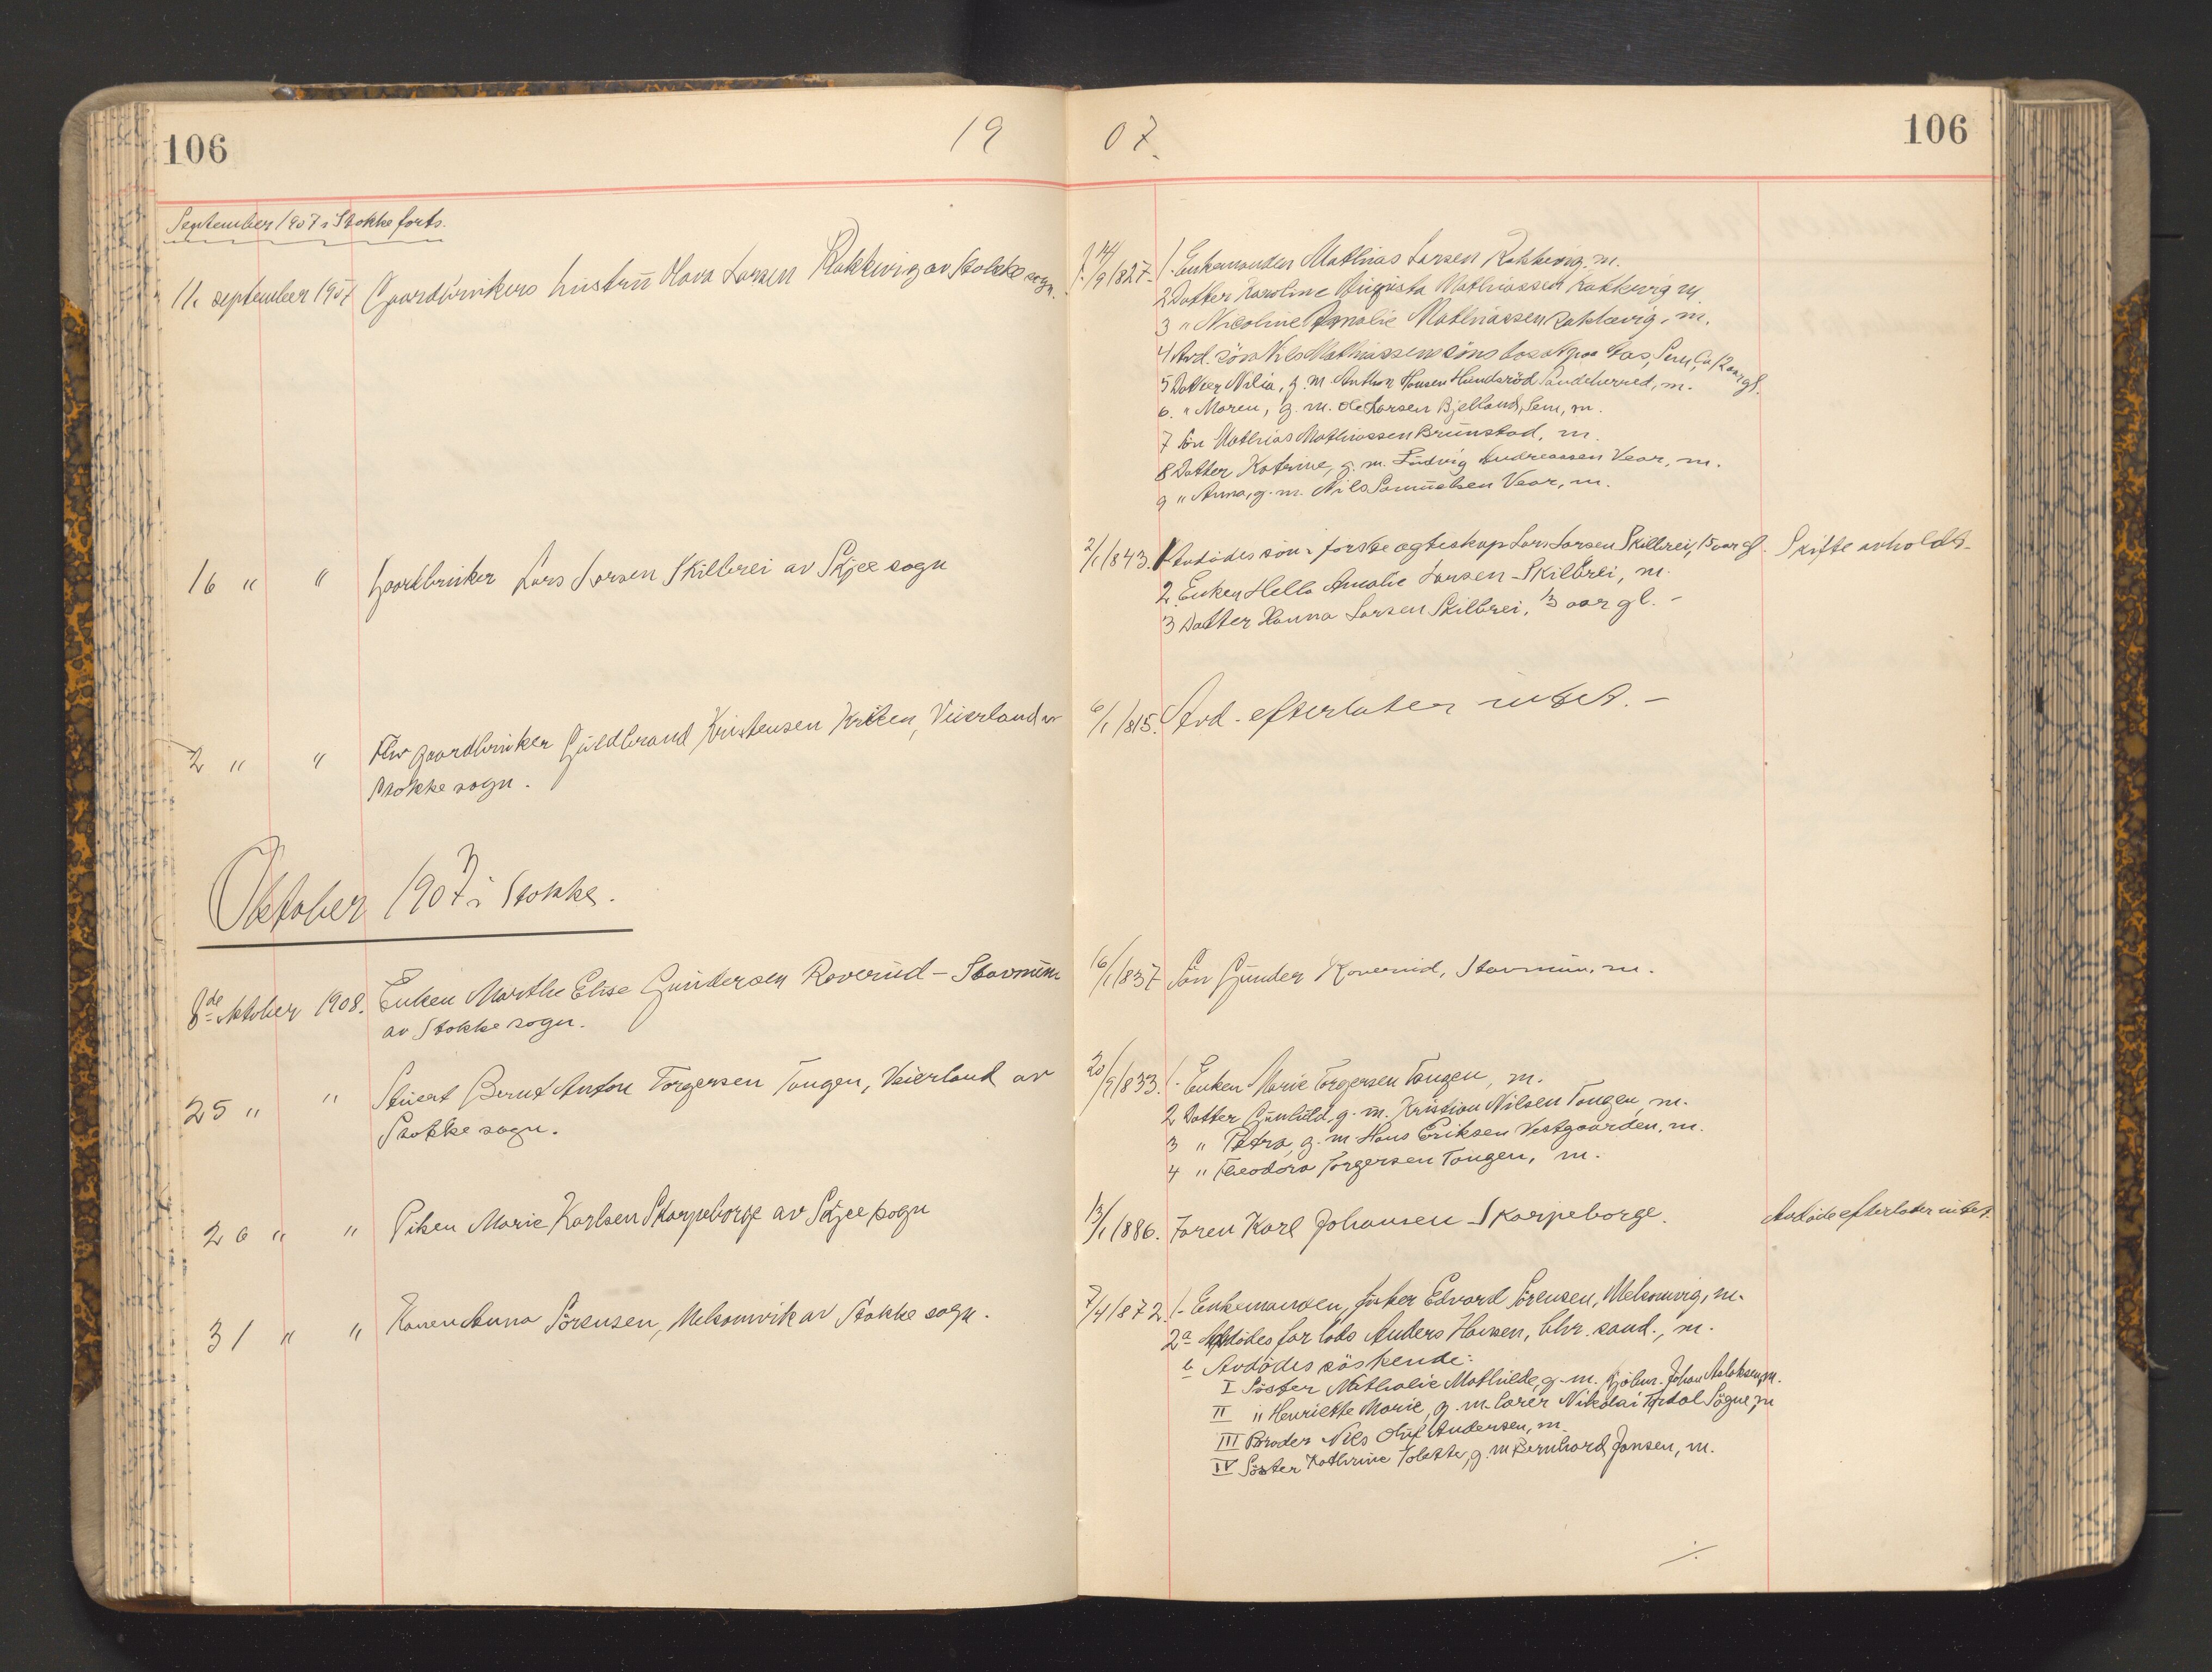 106
19
07.
106
September 1907 i Stokke forts.
11. september 1907 Gaardbrukers hustru Olava Larsen Rakkevig av Stokke sogn.
f. 14/9 1827.
1. Enkemanden Mathias Larsen Rakkevig. m.
2 Datter Karoline Augusta Mathiassen Rakkevig m.
3 " Nicoline Amalie Mathiassen Rakkevig, m.
4 Avd. søn Nils Mathiassens søns bosat paa Gas, Sem, ca 12 aar gl.
5 Datter Nilia, g. m. Anthon Hansen Hundsröd Sandeherred, m.
6. " Maren, g. m. Ole Larsen Bjelland, Sem, m.
7 Sön Mathias Mathiassen Brunstad, m.
8 Datter Katrine, g. m. Ludvig Andreassen Vear, m.
9 " Anna, g. m. Nils Samuelsen Vear, m.
16 " " Gaardbruker Lars Larsen Skilbrei av Skjee sogn
2/1 1843. 1 Avdödes sön i forste egteskap Lars Larsen Skilbrei, 15 aar gl. Skifte avholdt.
2. Enken Hella Amalie Larsen Skilbrei, m.
3 Datter Hanna Larsen Skilbrei, 13 aar gl. -
2 " " Fhv gaardbruker Guldbrand Kristensen Krikken, Veierland av
Stokke sogn.
6/1 1815. Avd. efterlater intet. -
Oktober 1907 i Stokke.
8de oktober 1908. Enken Marthe Elise Gundersen Roverud - Stavnum
av Stokke sogn.
16/1 1837 Sön Gunder Roverud, Stavnum, m.
25 " " Stuert Bernt Anton Torgersen Tangen, Veierland av
Stokke sogn.
20/9 1833. 1. Enken Marie Torgersen Tangen, m.
2 Datter Gunhild, g. m. Kristian Nilsen Tangen, m.
3 " Petra, g. m Hans Eriksen Vestgaarden, m.
4 " Theodora Torgersen Tangen, m.
26 " " Piken Marie Karlsen Skarpeborge av Skjee sogn
13/1 1886. Faren Karl Johansen Skarpeborge. Avdöde efterlater intet.
31 " " Konen Anna Sörensen, Melsomvik av Stokke sogn.
7/4 1872. 1. Enkemanden, fisker Edvard Sörensen, Melsomvig, m.
2 a Avdödes far lods Anders Hansen, Chr. sand., m.
b Avdödes söskende:
I Söster Nathalie Mathilde, g. m. sjöm. Johan Aslaksen, m.
II " Henriette Marie, g. m. lærer Nikolai Tordal Sögne, m
III Broder Nils Oluf Andersen, m.
IV Söster Kathrine Tolette, g. m Bernhard Jansen, m.